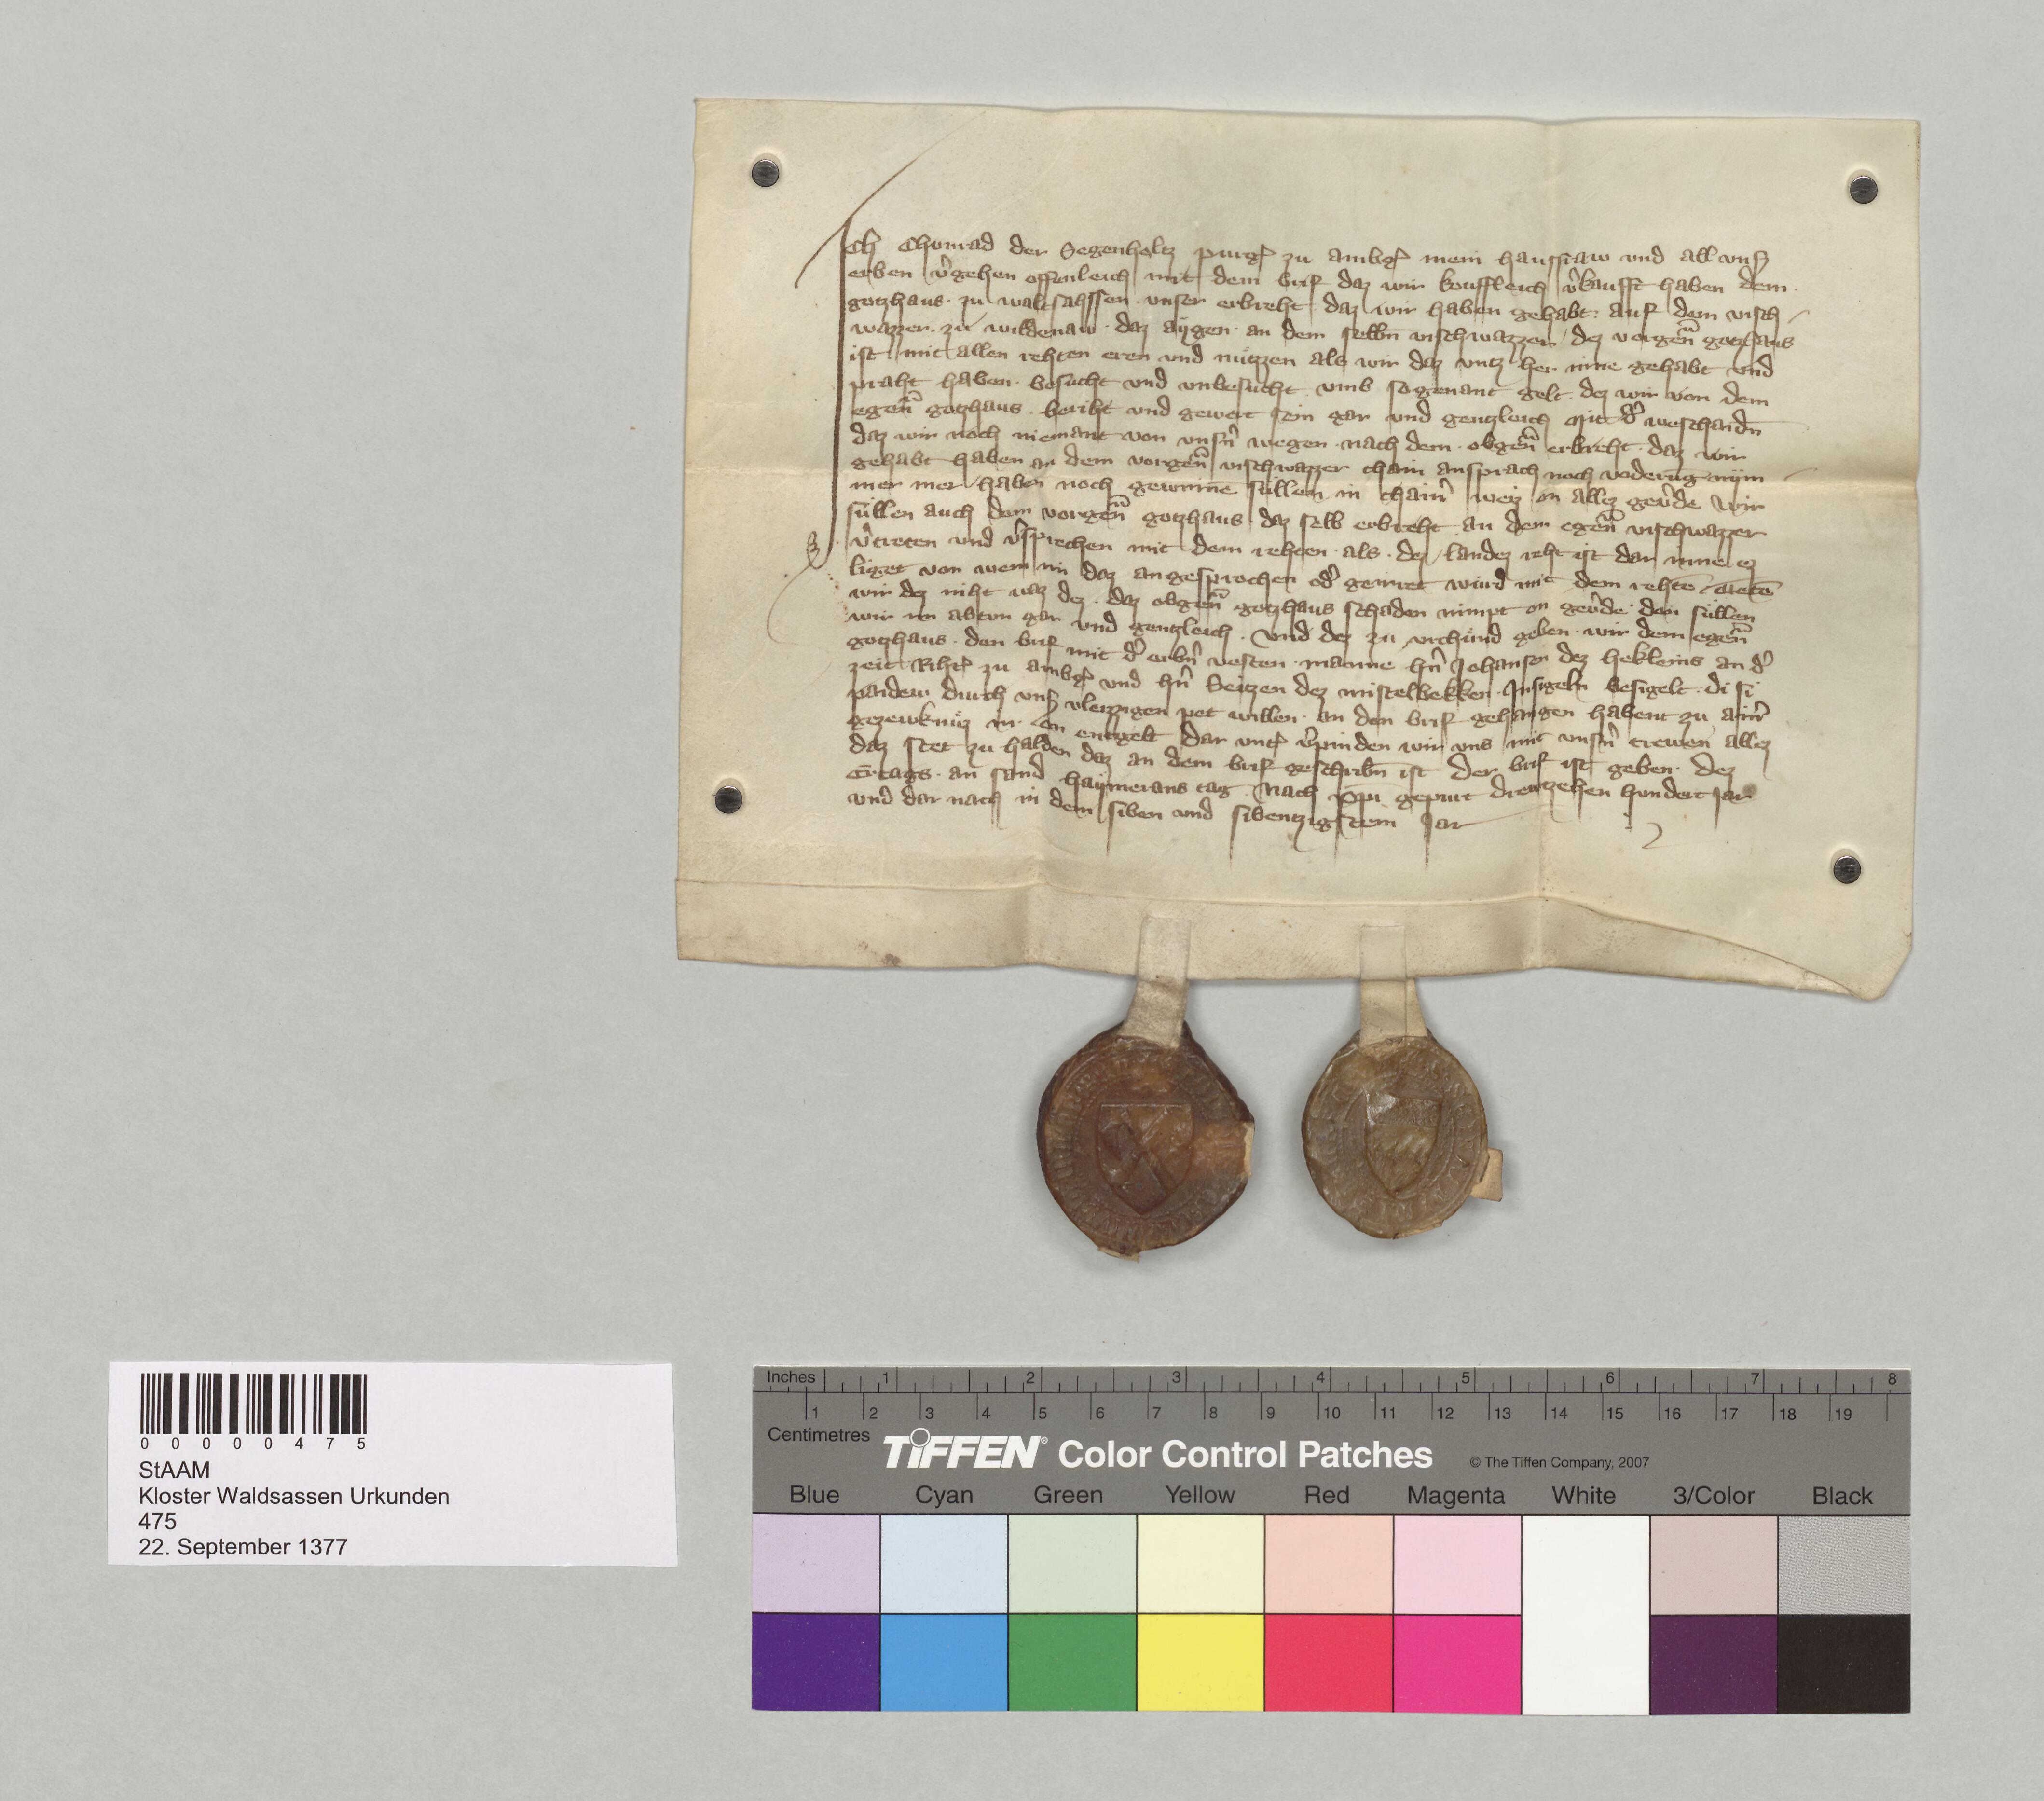 Ich Chunrad der Segenholtz purg̕ zu amb̕g mein hausfraw und all uns̕
erben v̕gehen offenleich mit dem brif daz wir kouffleich v̕kaufft haben dem
gotzhaus zu waltsahssen unser erbreht daz wir haben gehabt auf dem visch
wazzer zu wildenaw daz aÿgen an dem selbn̄ vischwazzer dez vorgen̄ gotzhaus
ist mit allen rehten eren und nützzen als wir daz untz her inne gehabt und
praht haben besucht und unbesucht umb sogenant gelt dez wir von dem
egen̄ gotzhaus beriht und gewert sein gar und gentzleich mit d̕ beschaidn̄
daz wir noch niemant von unsn̕ wegen nach dem obgen̄ erbreht daz wir
gehabt haben an dem vorgen̄ vischwazzer chain ansprach noch voderūg nÿm
mer mer haben noch gewinnē süllen in chain̕ weiz on allez gev̕de Wir
süllen auch dem vorgen̄ gotzhaus daz selb erbreht an dem egen̄ vischwazzer
v̕treten und v̕sprechen mit dem rehten als dez landez reht ist dar inne ez
liget von wem im daz angesprochen od̕ geirret würd mit dem rehtē Tetē
wir dez niht waz dez daz obgen̄ gotzhaus schaden nimpt on gev̕de den süllen
wir im abtun gar und gentzleich Und dez zu urchünd geben wir dem egen̄
gotzhaus den brif mit d̕ erbn̕ vesten manne hn̕ Johansen dez hekleins an d̕
zeit Riht̕ zu amb̕g und hn̕ Seitzen dez mistelbekken Insigeln besigelt di si
paidew durch uns̕ vleizzigen pet willen an den brif gehangen habent zu ain̕
gezewknüz in on entgelt dar unt̕ v̕pinden wir uns mit unsn̕ trewen allez
daz stet zu halden daz an dem brif geschribn̄ ist Der brif ist geben dez
Ērtags an sand haÿmerans tag Nach xp̄i gepurt drewtzehen hundert Jar
und dar nach in dem siben und sibentzigstem Jar
0 0 0 0 0 4 7 5
StAAM
Kloster Waldsassen Urkunden
475
22. September 1377
Inches 1 2 3 4 5 6 7 8
1 2 3 4 5 6 7 8 9 10 11 12 13 14 15 16 17 18 19
Centimetres
TIFFEN® Color Control Patches © The Tiffen Company, 2007
Blue Cyan Green Yellow Red Magenta White 3/Color Black